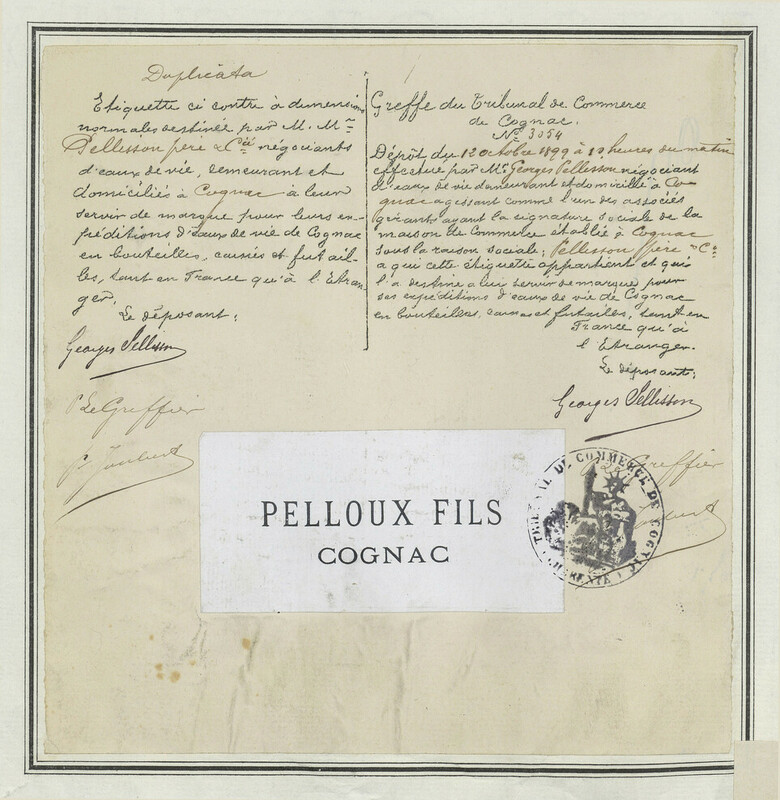 Duplicata
Etiquette ci contre à dimensions
normales destinée par M. Mrs
Pellisson père & Cie négociants
d'eaux de vie, demeurant et
domiciliés à Cognac à leur
servir de marque pour leurs ex-
péditions d'eaux de vie de Cognac
en bouteilles, caisses et futail-
les, tant en France qu'à l'Etran-
ger.
Le déposant:
Georges Pellisson
P. Le Greffier
Greffe du Tribunal de Commerce
de Cognac.
No 3054
Dépôt du 12 octobre 1899 à heures du matin
effectué par Mr. Georges Pellisson négociant
d'eaux de vie demeurant et domicilié à Co-
gnac agissant comme l'un des associés
gérants ayant la signature sociale de la
maison de Commerce établie à Cognac
sous la raison sociale: Pellisson père & Cie
à qui cette étiquette appartient et qui
l'a destine a lui servir de marque pour
ses expéditions d'eaux de vie de Cognac
en bouteilles, caisses et futailles, tant en
France qu'à
l'Etranger.
Le déposant:
Georges Pellisson
Le Greffier
PELLOUX FILS
COGNAC
TRIBUNAL DE COMMERCE DE COGNAC
CHARENTE